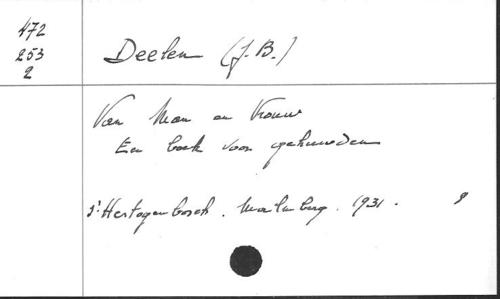 472
253
2
Deelen (J.B.)
Van Man en Vrouw
Een boek voor gehuwden
s'Hertogenbosch. Malmberg. 1931. 8